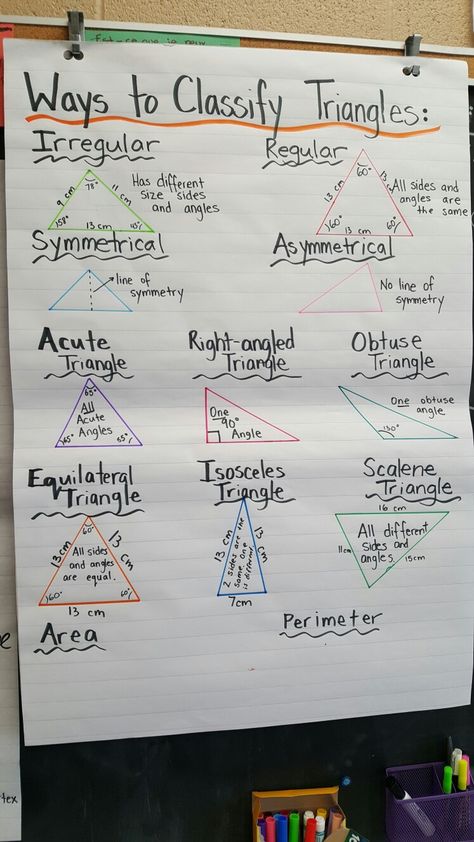 Ways to Classify Triangles:
Irregular
9 cm
78°
11 cm
58°
13 cm
Has different
size sides
and angles
Regular
13 cm
60°
13
60°
13 cm
60°
All sides and
angles are
the same
Symmetrical
line of
symmetry
Asymmetrical
No line of
symmetry
Acute
Triangle
65°
All
Acute
Angles
65°
55°
Right-angled
Triangle
One
90°
Angle
Obtuse
Triangle
One obtuse
angle
130°
Equilateral
Triangle
60°
13 cm
13 cm
All sides
and angles
are equal.
60°
60°
13 cm
Isosceles
Triangle
13 cm
13 cm
2 sides are the
same. One
is different
7cm
Scalene
Triangle
16 cm
11cm
15cm
All different
sides and
angles.
Area
Perimeter
tex